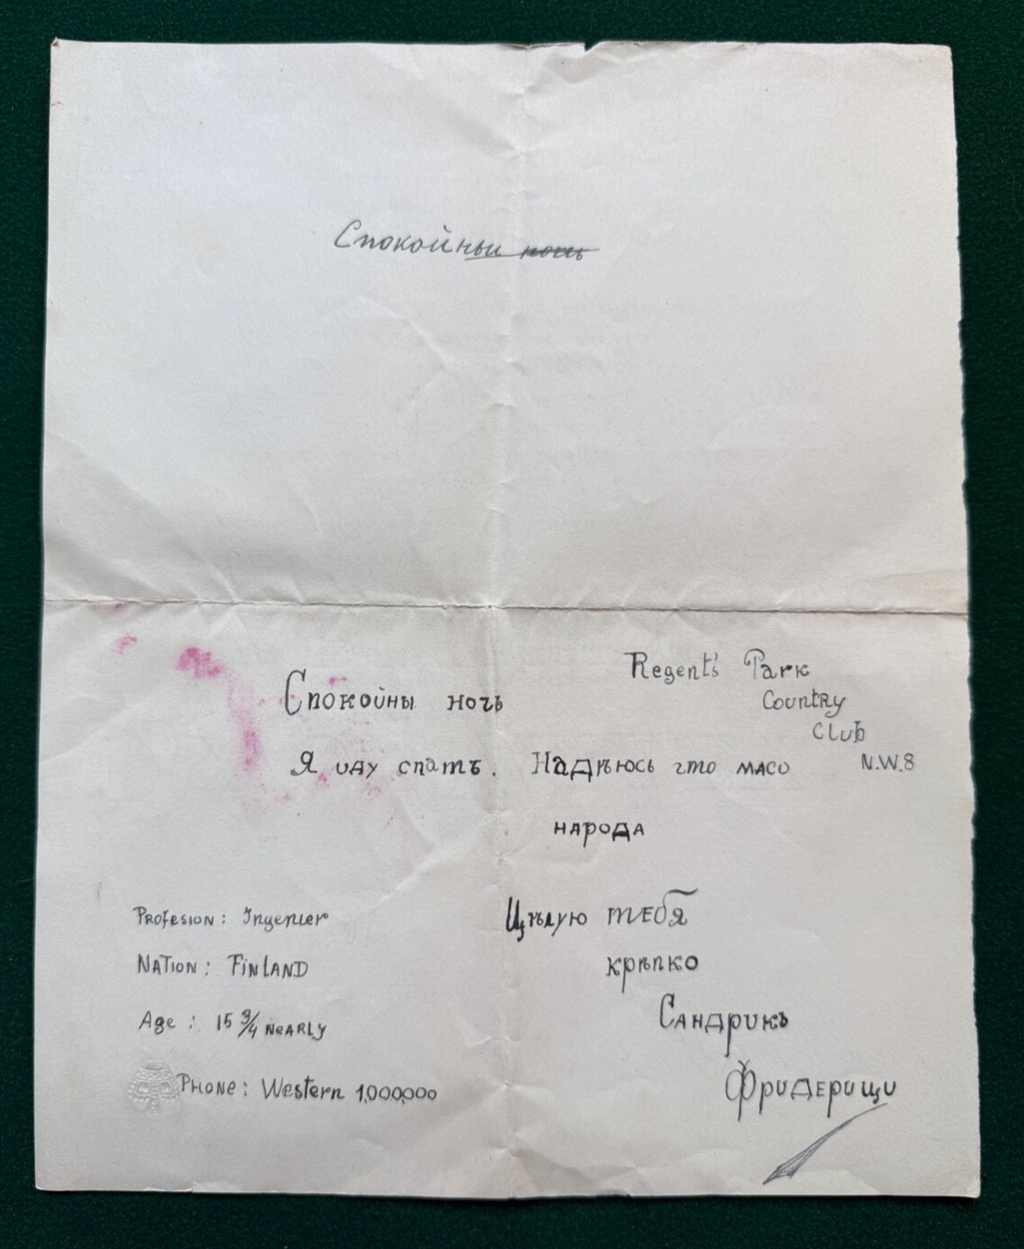 Спокойныи ночь
Regent's Park
Country
Club
N.W.8
Спокойны ночь
Я иду спать. Надѣюсь что масо
народа
Profesion: Ingenier
Nation: Finland
Age: 15 3/4 nearly
Phone: Western 1,000,000
Цѣлую тебя
крѣпко
Сандрикъ
Фридерищи